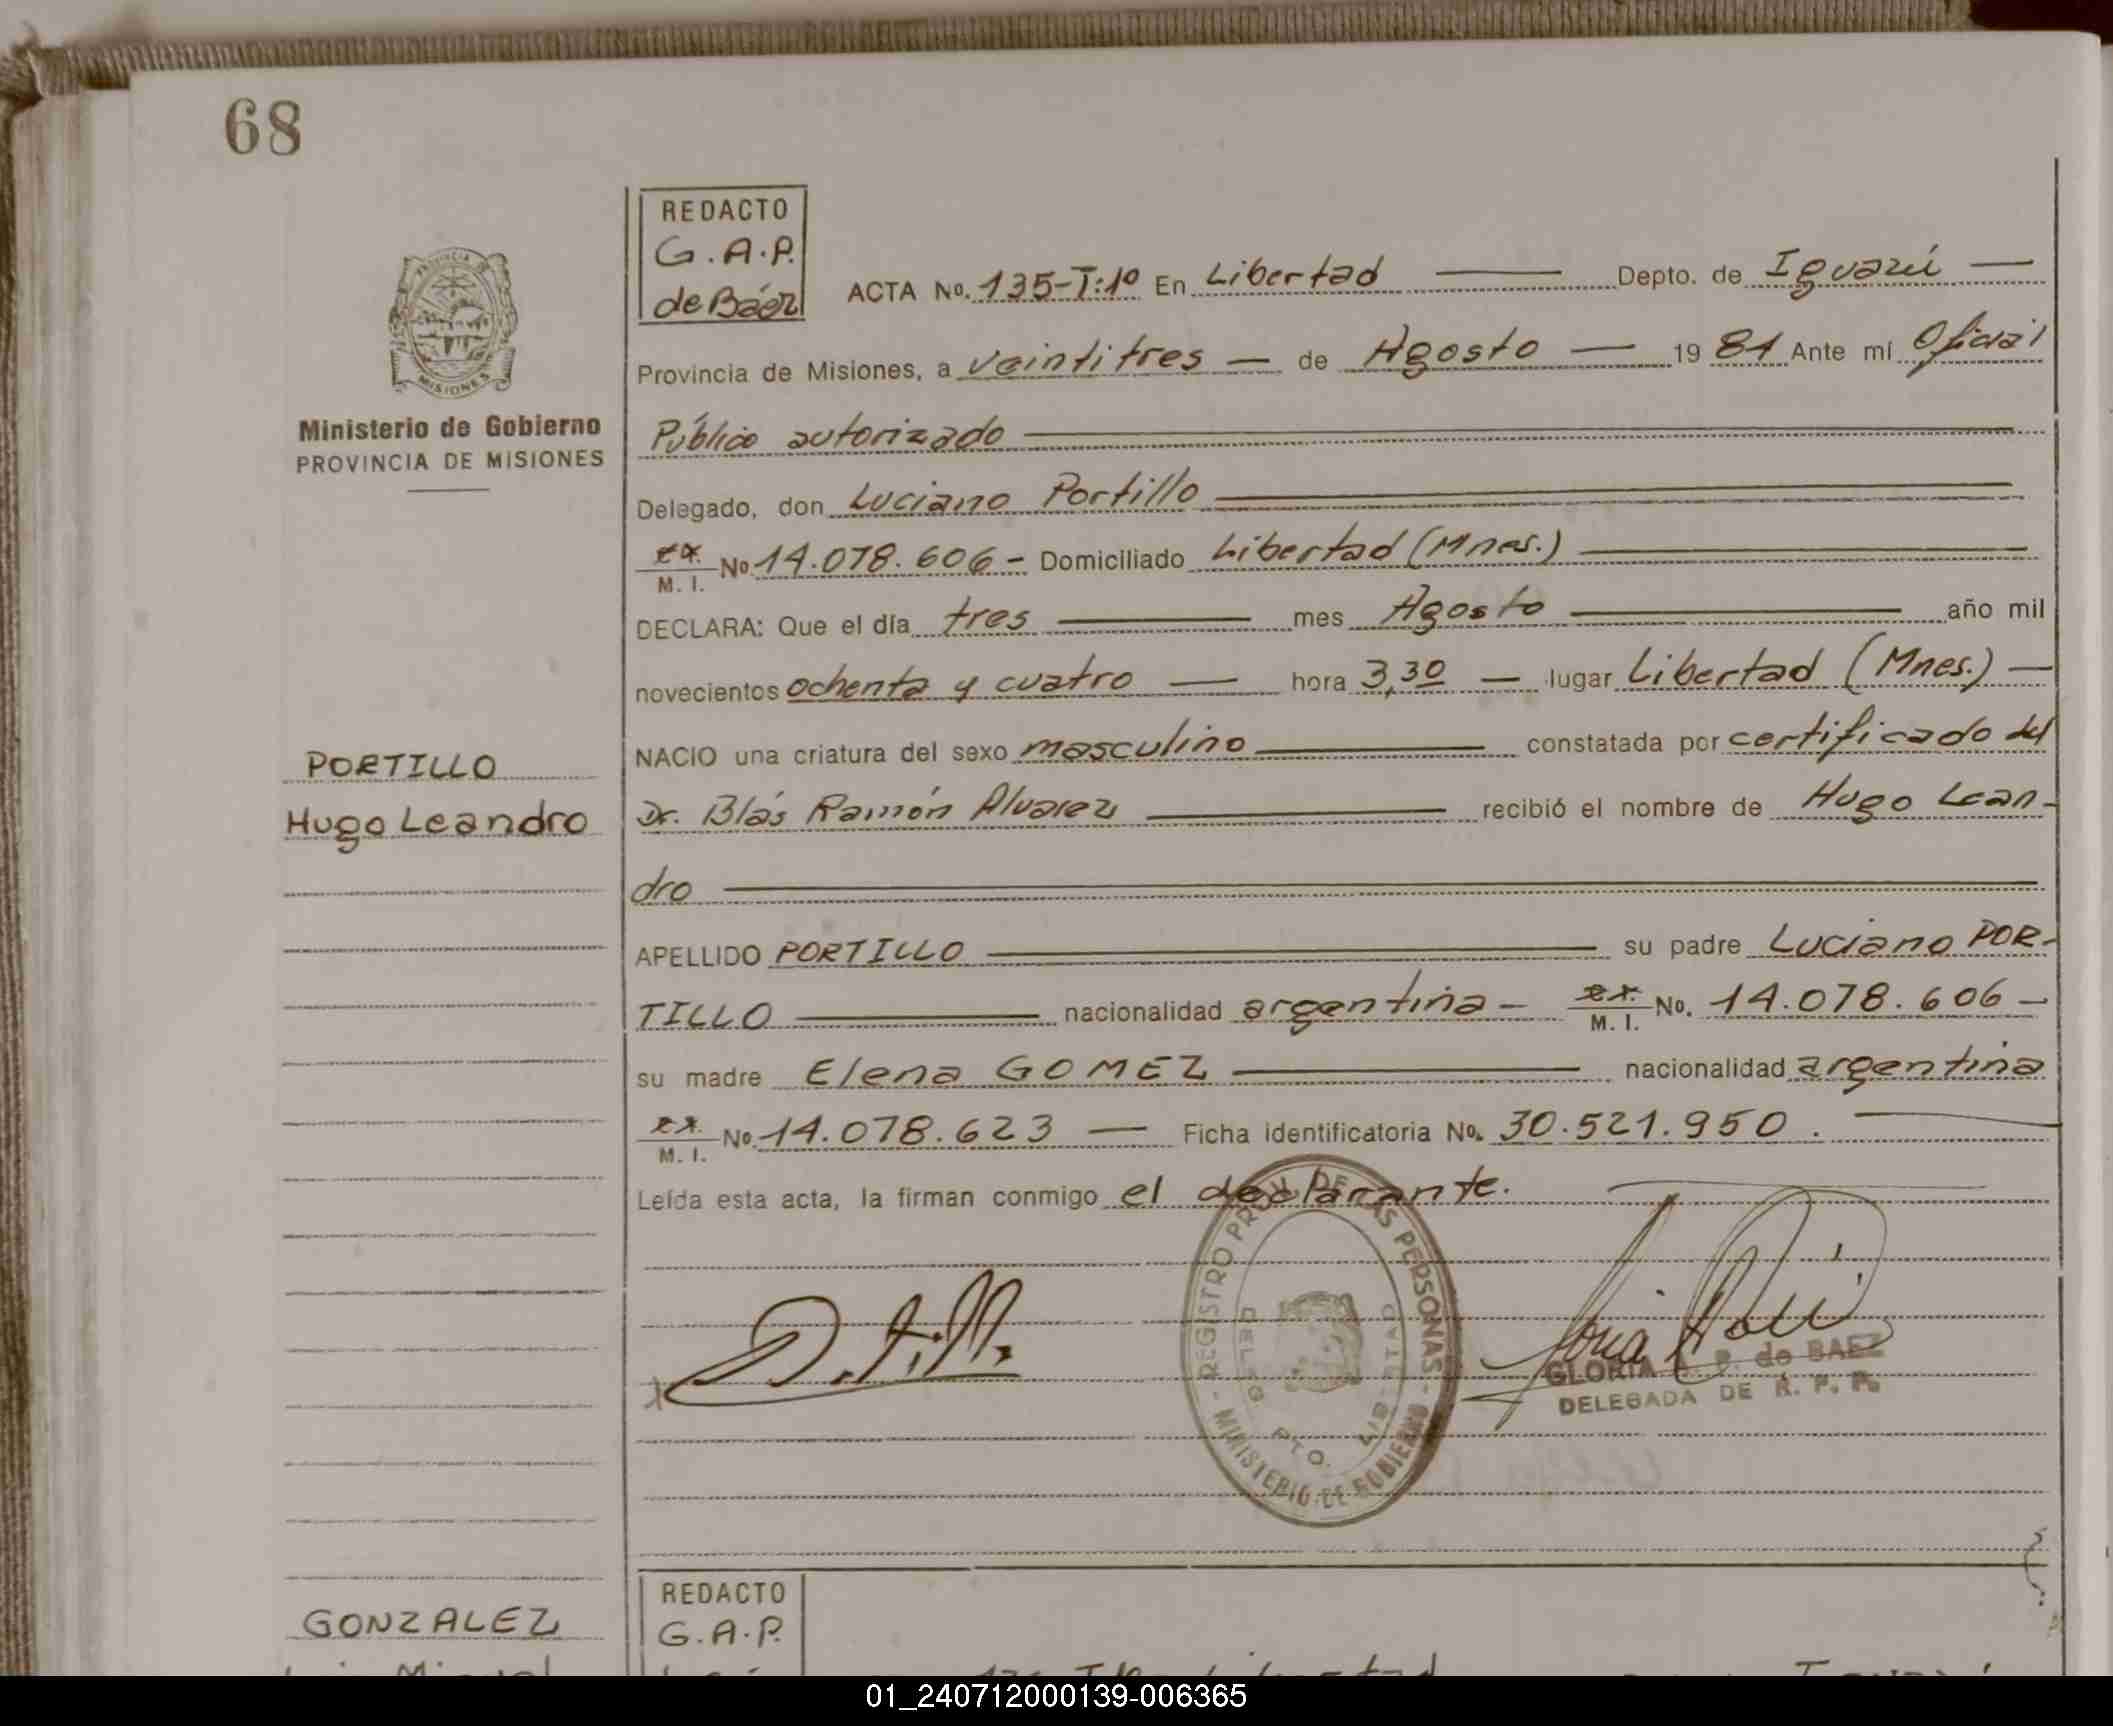 68
PROVINCIA DE
MISIONES
Ministerio de Gobierno
PROVINCIA DE MISIONES
PORTILLO
Hugo Leandro
REDACTO
G.A.P.
de Báez
ACTA No. 135-T:1º En Libertad Depto. de Iguazú
Provincia de Misiones, a veintitres de Agosto 1984 Ante mí Oficial
Público autorizado
Delegado, don Luciano Portillo
M. I. No 14.078.606 - Domiciliado Libertad (Mnes.)
DECLARA: Que el día tres mes Agosto año mil
novecientos ochenta y cuatro hora 3,30 lugar Libertad (Mnes.)
NACIO una criatura del sexo masculino constatada por certificado del
Dr. Blás Ramón Alvarez recibió el nombre de Hugo Lean-
dro
APELLIDO PORTILLO su padre Luciano POR-
TILLO nacionalidad argentina - M. I. No. 14.078.606 -
su madre Elena GOMEZ nacionalidad argentina
M. I. No. 14.078.623 Ficha identificatoria No. 30.521.950.
Leída esta acta, la firman conmigo el declarante.
REGISTRO PROV. DE LAS PERSONAS - MINISTERIO DE GOBIERNO -
DELEG. PTO. LIBERTAD
GLORIA A. P. de BAEZ
DELEGADA DE R. P. P.
GONZALEZ
REDACTO
G.A.P.
01_240712000139-006365